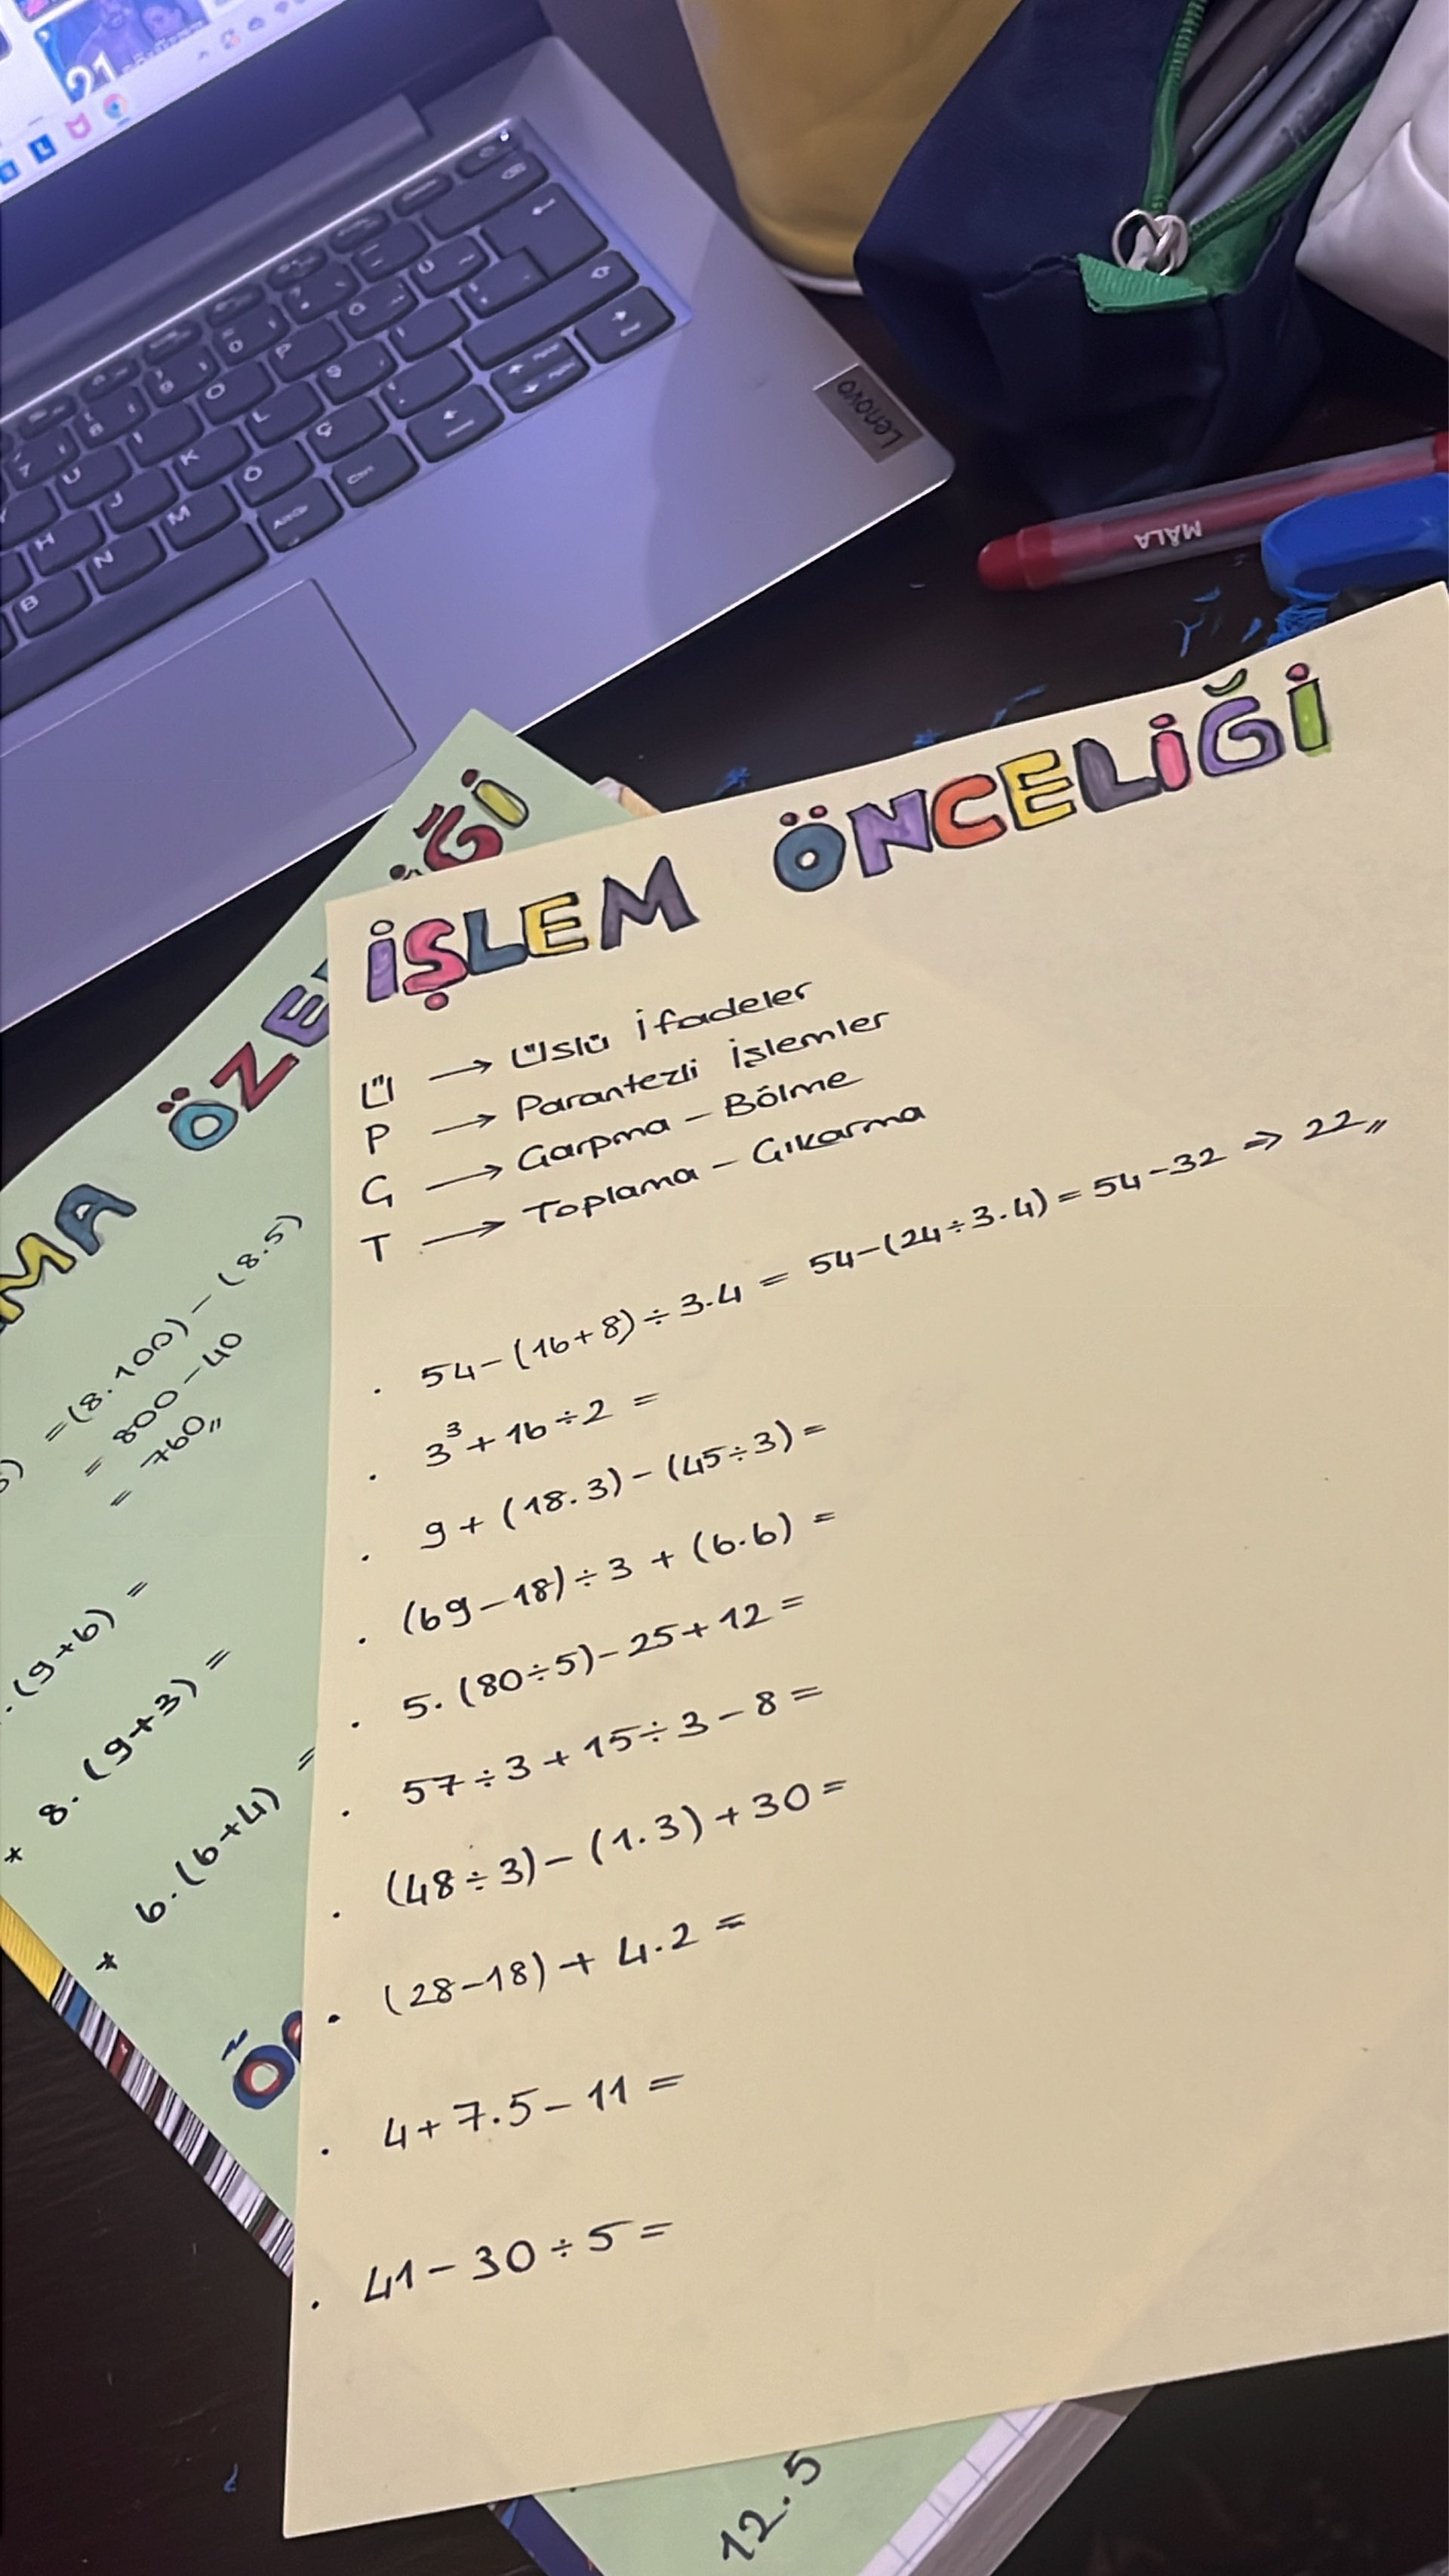 21
Lenovo
MÅLA
İŞLEM ÖNCELİĞİ
Ü → Üslü İfadeler
P → Parantezli İşlemler
Ç → Çarpma - Bölme
T → Toplama - Çıkarma
. 54-(16+8)÷3.4 = 54-(24÷3.4) = 54-32 => 22,,
. 3³+16÷2 =
. 9+(18.3)-(45÷3) =
. (69-18)÷3 + (6.6) =
. 5.(80÷5)-25+12 =
. 57÷3+15÷3-8 =
. (48÷3)-(1.3)+30 =
. (28-18)+4.2 =
. 4+7.5-11 =
. 41-30÷5 =
MA ÖZE Ğİ
=(8.100)-(8.5)
= 800-40
= 760,,
.(9+6) =
* 8.(9+3) =
* 6.(6+4) =
12.5